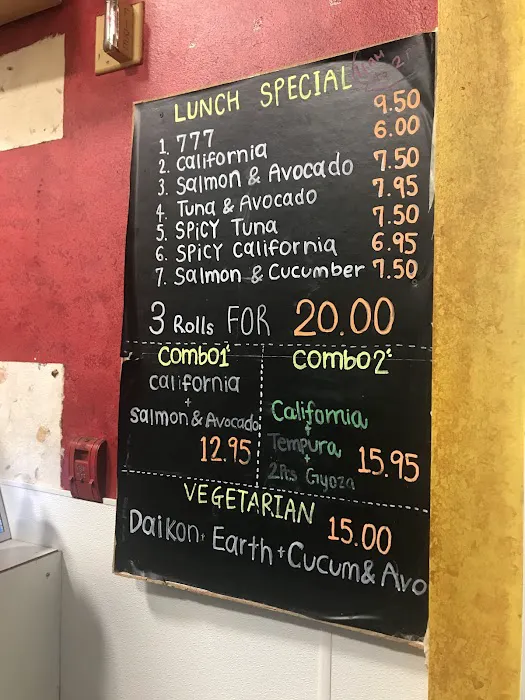 LUNCH SPECIAL
1. 777 9.50
2. California 6.00
3. Salmon & Avocado 7.50
4. Tuna & Avocado 7.95
5. SPiCY Tuna 7.50
6. SPiCY California 6.95
7. Salmon & Cucumber 7.50
3 Rolls FOR 20.00
Combo1
California
+
Salmon & Avocado
12.95
Combo2
California
+
Tempura
+
2Pcs Gyoza
15.95
VEGETARIAN 15.00
Daikon + Earth + Cucum & Avo